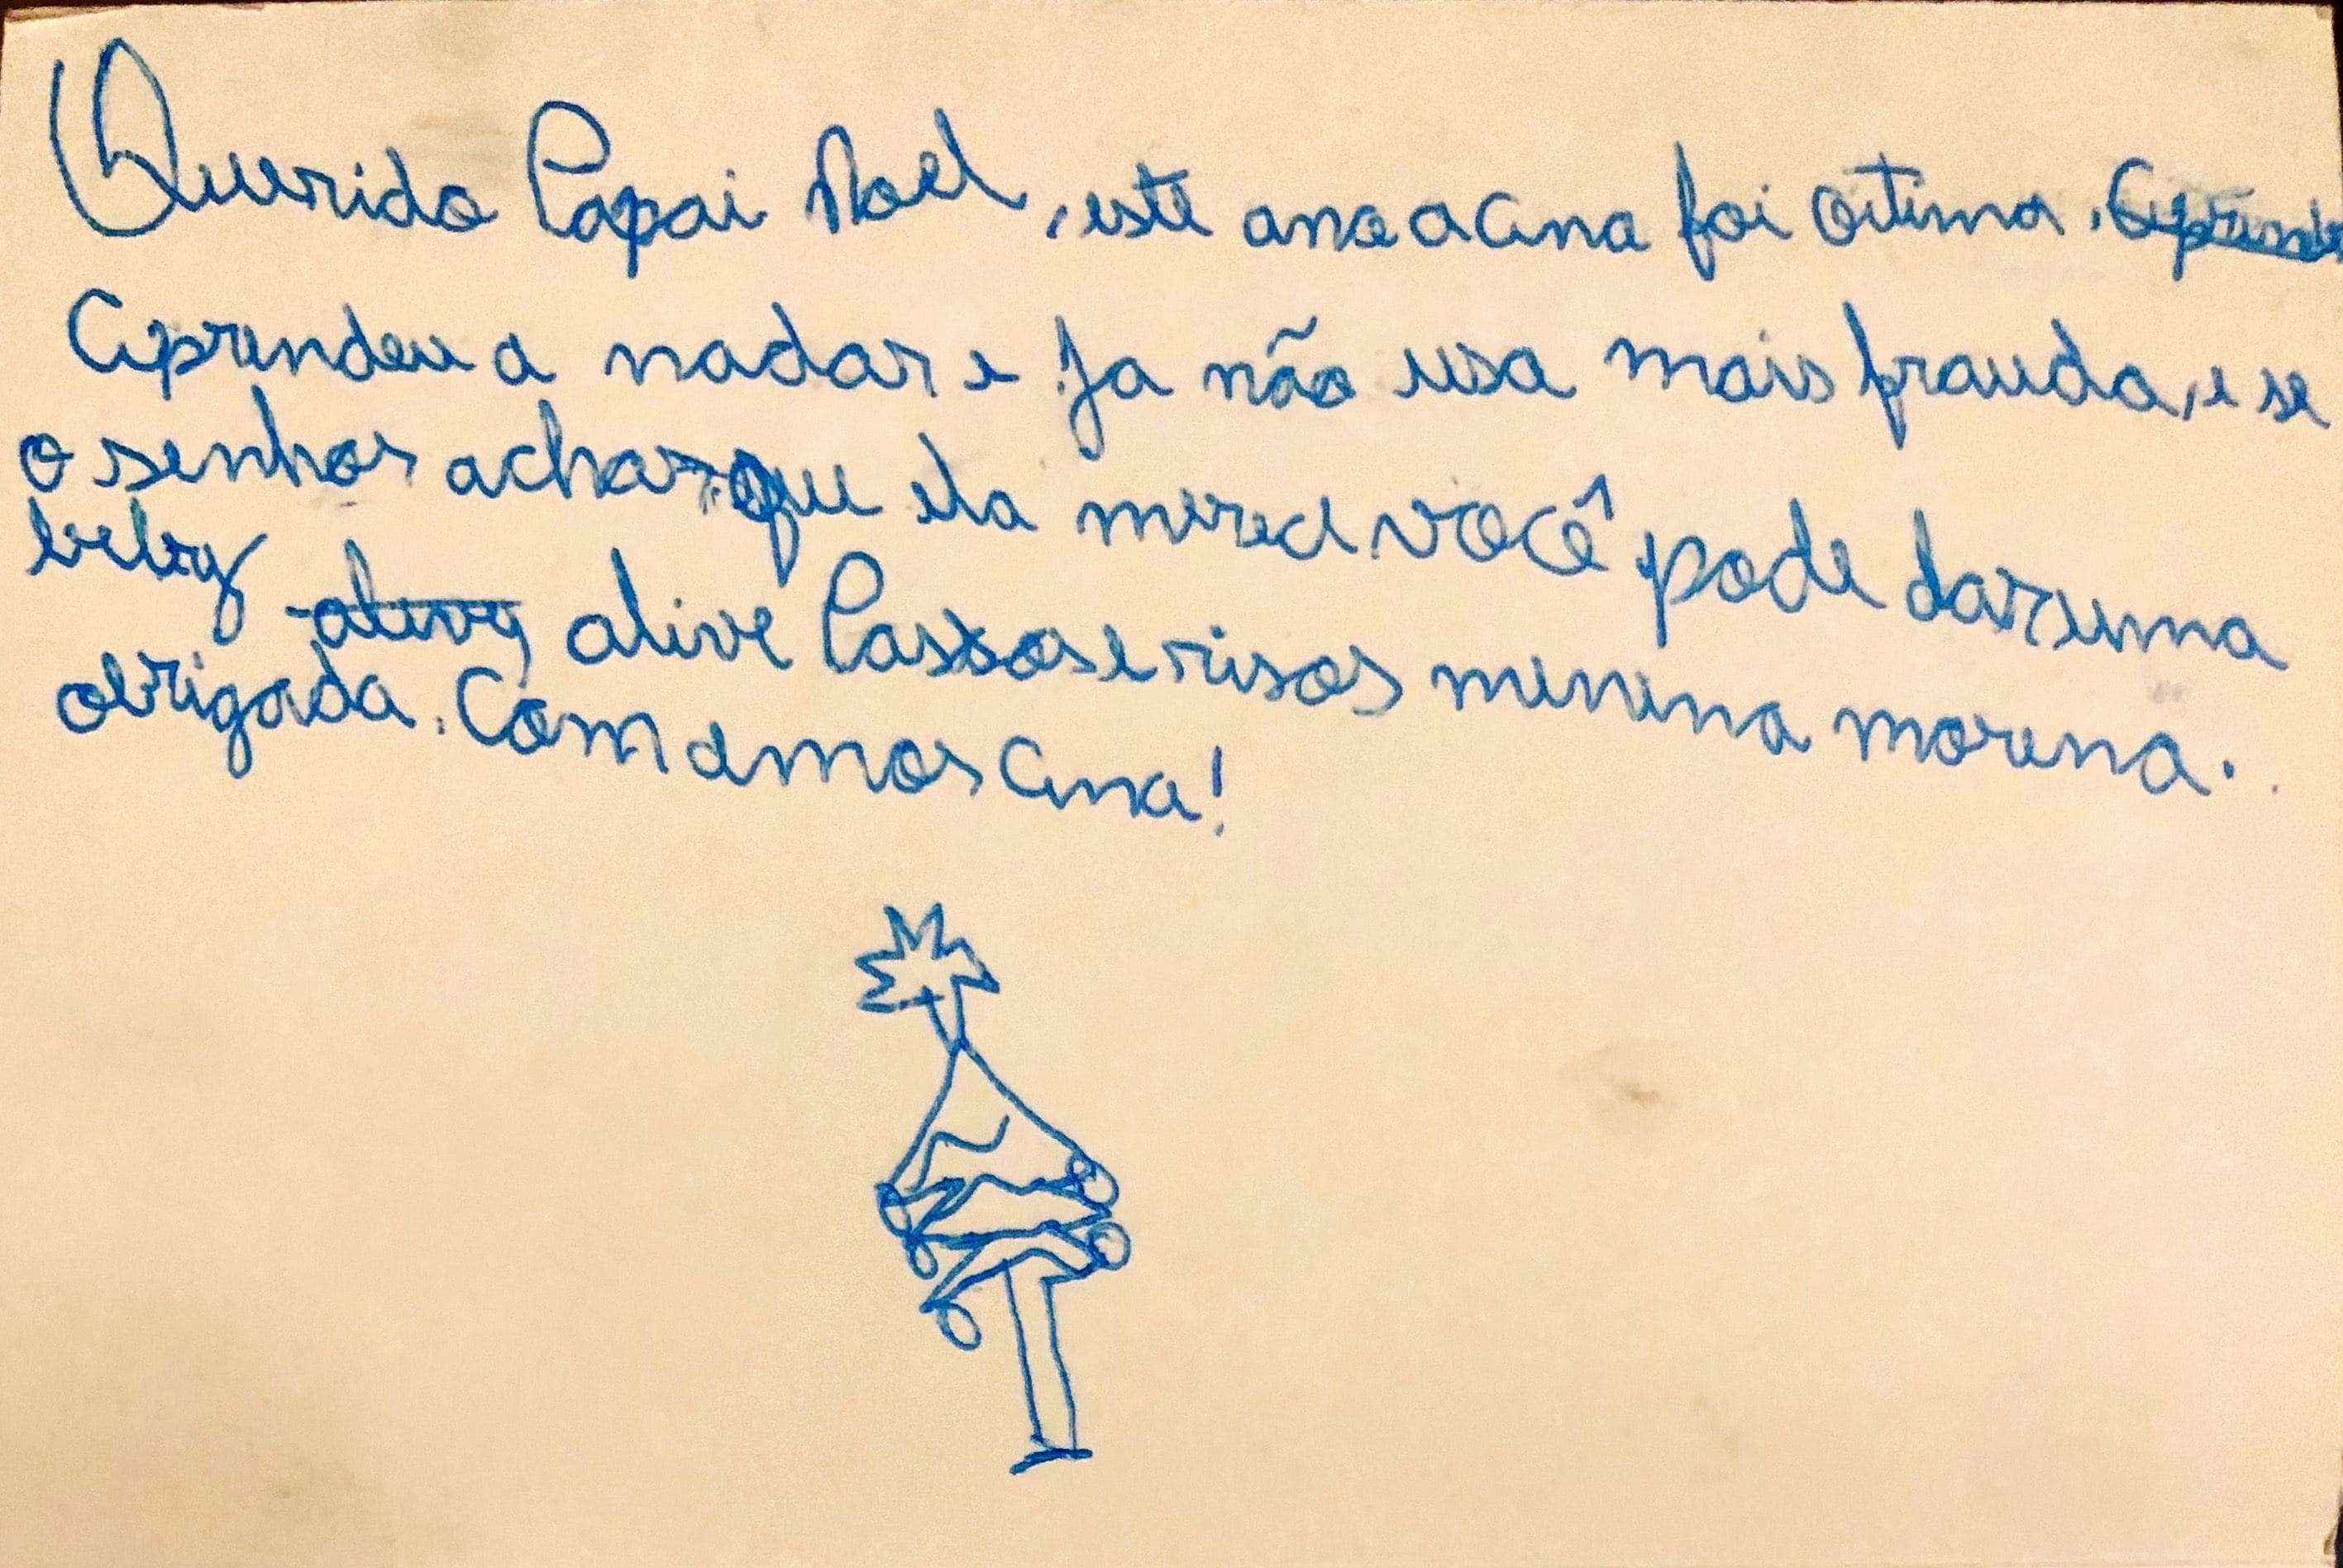 Querido Papai Noel, este ano a Ana foi otima. Aprende
Aprendeu a nadar e Ja não usa mais frauda, e se
o senhor achar que ela merece você pode dar uma
baby alive alive Passos e risos menina morena.
obrigada. Com amor Ana!